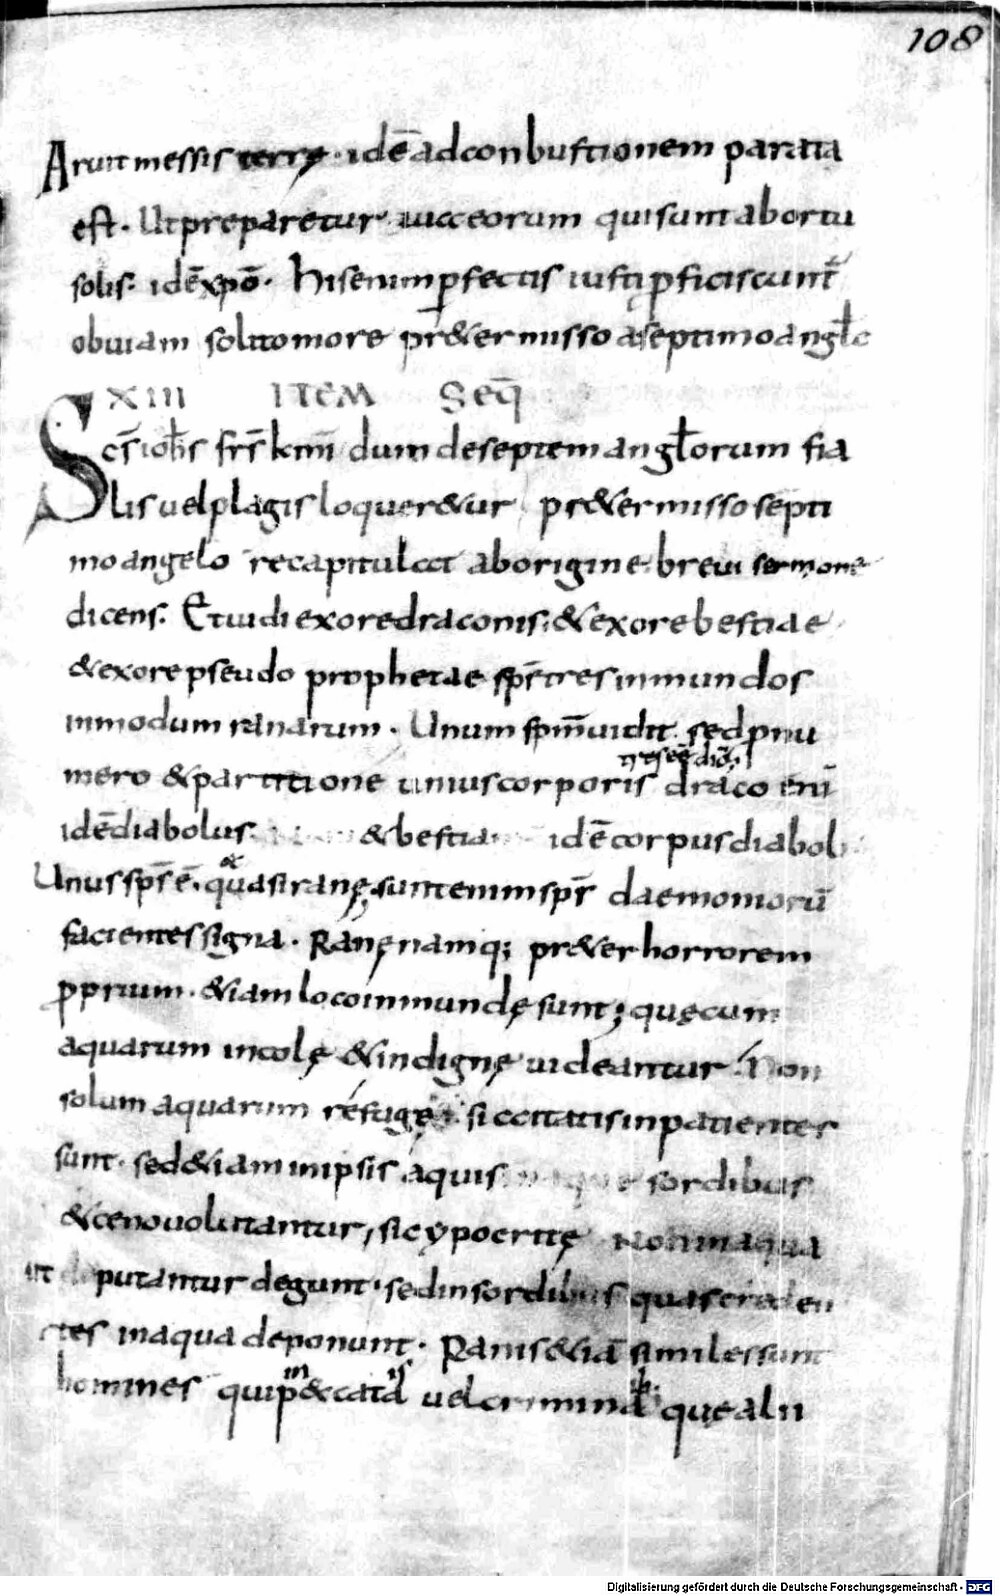 108
Aruit messis terrę · idē ad conbustionem parata
est · Ut preparetur · uia eorum qui sunt ab ortu
solis · idē xpō · His enim pfectis iusti pficiscunt̄
obuiam solito more pr&ermisso a septimo anglo
XIII ITEM Seq̄
Scs̄ ioh̄s frs̄ kmī dum de septem anglorum fia
lis uel plagis loquer&ur pr&ermisso septi
mo angelo recapitulat ab origine breui sermone
dicens · Et uidi ex ore draconis · & ex ore bestiae
& ex ore pseudo prophetae sps̄ tres inmundos
in modum ranarum · Unum spm̄ uidit sed p nu
mero & partitione unius corporis draco enī
idē diabolus · & bestia idē corpus diaboli
Unus sps̄ ē · quasi ranę · sunt enim sps̄ daemoniorū
facientes signa · Ranę namq; pr&er horrorem
pprium · &iam loco inmundę sunt; quę cum
aquarum incolę & indignę uideantur · Non
solum aquarum refugę siccitatis inpatientes
sunt · sed &iam in ipsis aquis sordibus
& ceno uolutantur, sic ypocritę Non in aqua
ut putantur degunt · sed in sordibus quas creden
tes in aqua deponunt · Ranis &iā similes sunt
homines qui p&cata uel crimina quę alii